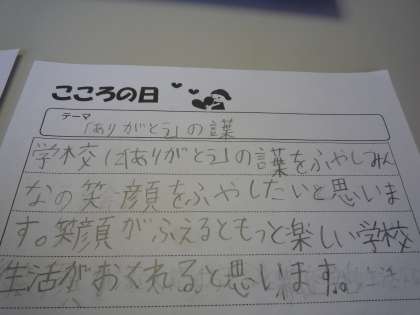 こころの日
テーマ
「ありがとう」の言葉
学校に「ありがとう」の言葉をふやしみん
なの笑顔をふやしたいと思いま
す。笑顔がふえるともっと楽しい学校
生活がおくれると思います。